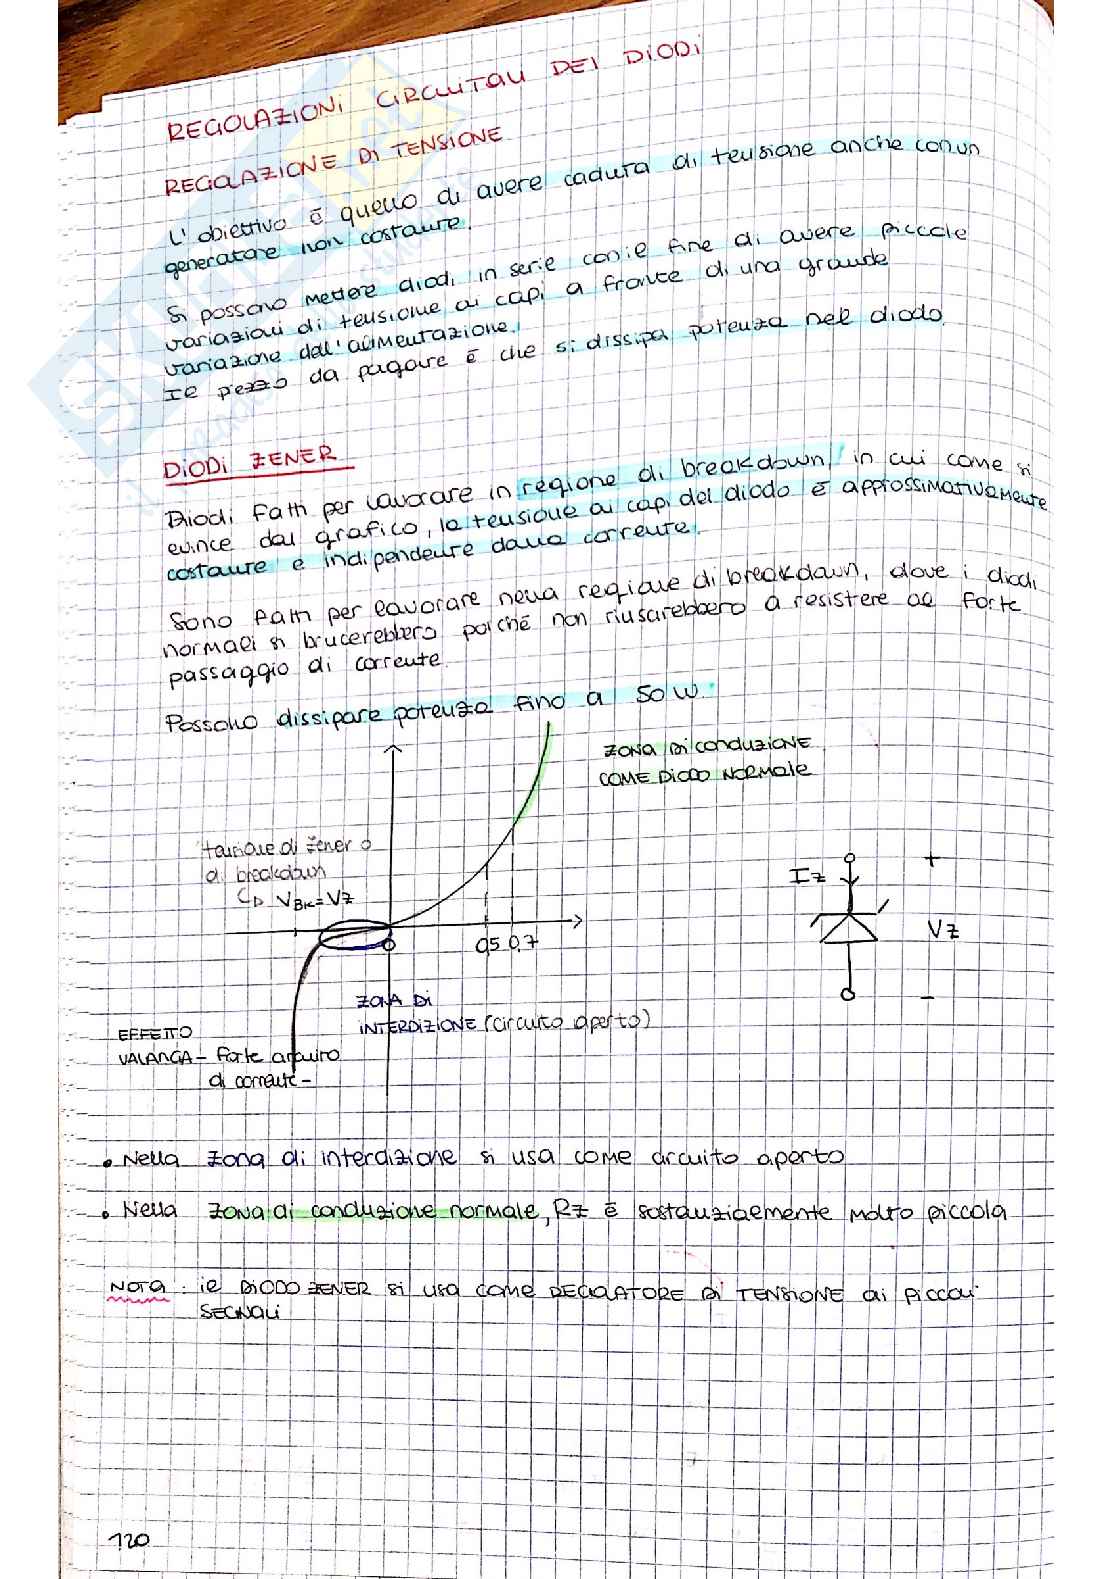 REGOLAZIONI CIRCUITALI DEI DIODI
REGOLAZIONE DI TENSIONE
L'obiettivo è quello di avere caduta di tensione anche con un
generatore non costante.
Si possono mettere diodi in serie con il fine di avere piccole
variazioni di tensione ai capi a fronte di una grande
variazione dell'alimentazione.
Il prezzo da pagare è che si dissipa potenza nel diodo.
DIODI ZENER
Diodi fatti per lavorare in regione di breakdown, in cui come si
evince dal grafico, la tensione ai capi del diodo è approssimativamente
costante e indipendente dalla corrente.
Sono fatti per lavorare nella regione di breakdown, dove i diodi
normali si brucerebbero poiché non riuscirebbero a resistere al forte
passaggio di corrente.
Possono dissipare potenza fino a 50 W.
ZONA DI CONDUZIONE
COME DIODO NORMALE
tensione di zener o
di breakdown
VBK=VZ
0
0,5 0,7
IZ
+
VZ
-
ZONA DI
INTERDIZIONE (circuito aperto)
EFFETTO
VALANGA - forte aumento
di corrente -
• Nella zona di interdizione si usa come circuito aperto
• Nella zona di conduzione normale, RZ è sostanzialmente molto piccola
NOTA: il DIODO ZENER si usa come REGOLATORE DI TENSIONE ai piccoli
SEGNALI
120